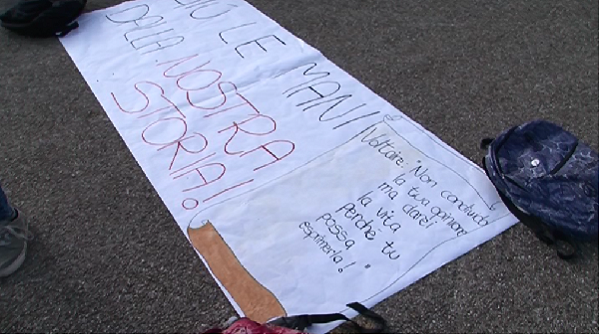 GIÙ LE MANI
DALLA NOSTRA
STORIA!
Voltaire: "Non condivido
la tua opinione
ma darei
la vita
perché tu
possa
esprimerla!"